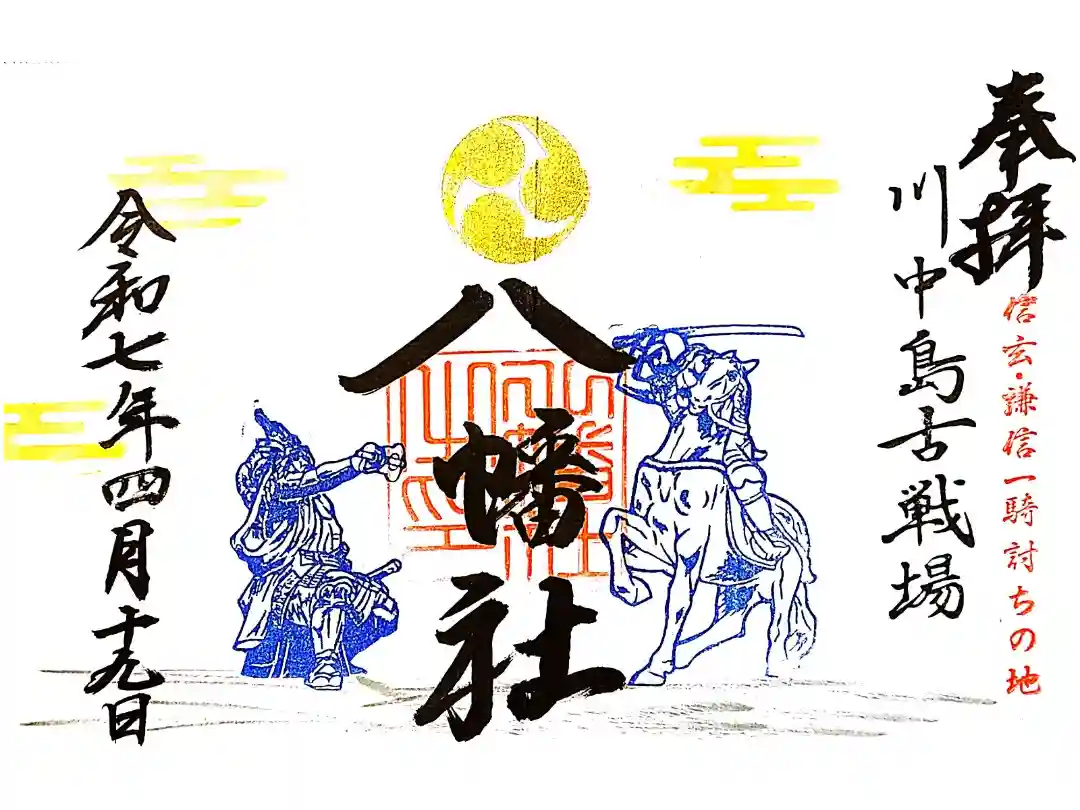 奉拝
信玄・謙信一騎討ちの地
川中島古戦場
八幡社
八幡社之印
令和七年四月十九日